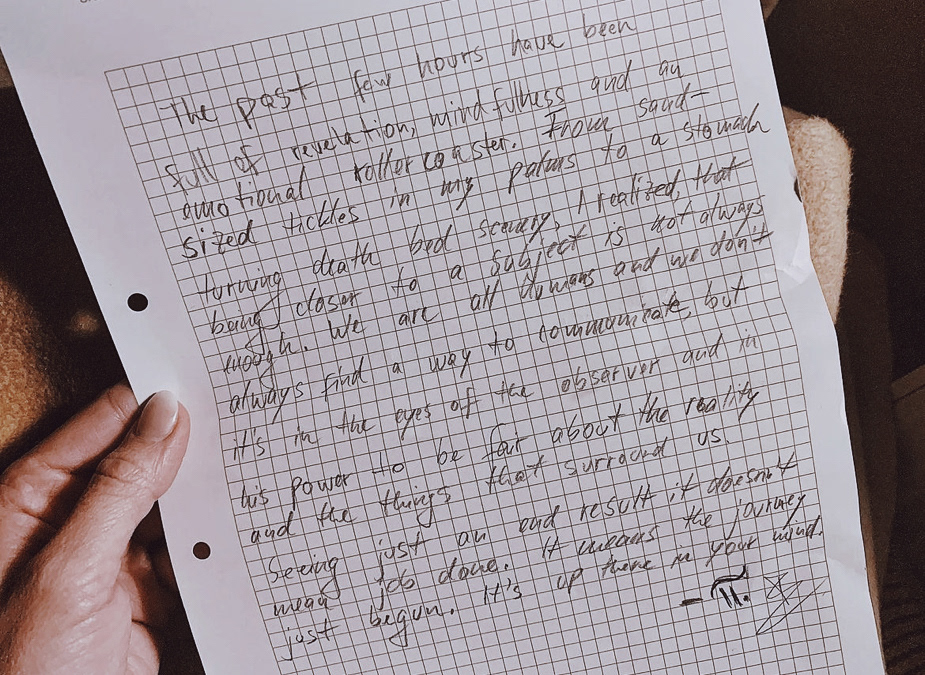 The past few hours have been
full of revelation, mindfulness and an
emotional rollercoaster. From sand-
sized tickles in my palms to a stomach
turning death bed scenery, I realized, that
being closer to a subject is not always
enough. We are all humans and we don't
always find a way to communicate, but
it's in the eyes of the observer and in
his power to be fair about the reality
and the things that surround us.
Seeing just an end result it doesn't
mean job done. It means the journey
just begun. It's up there in your mind.
- π.